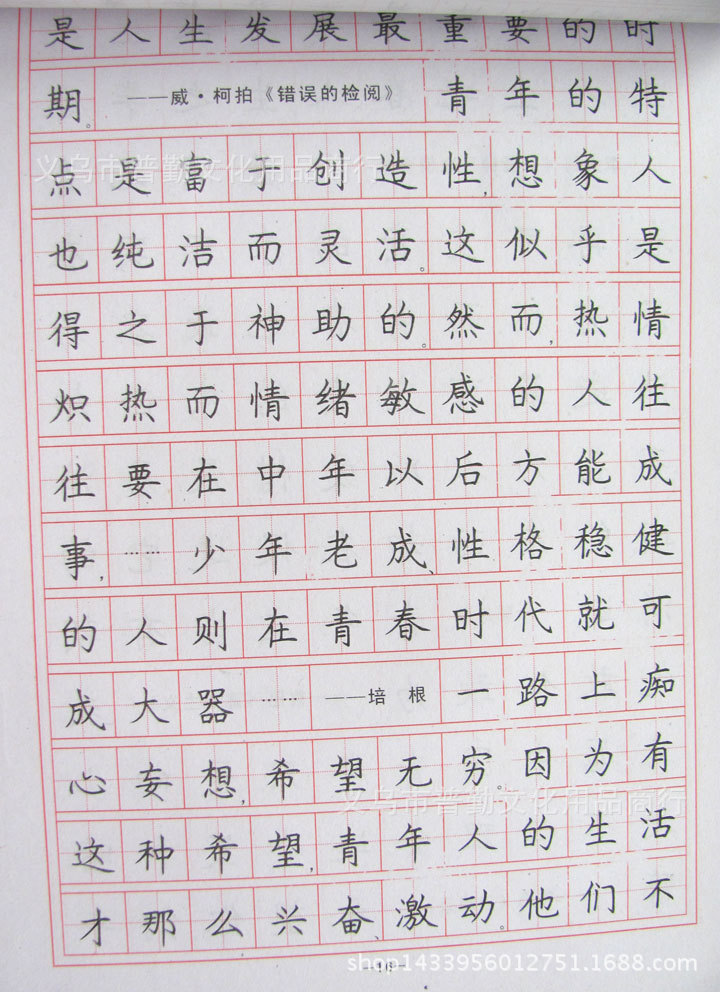 是人生发展最重要的时
期。——威·柯拍《错误的检阅》青年的特
点是富于创造性,想象人
也纯洁而灵活。这似乎是
得之于神助的。然而,热情
炽热而情绪敏感的人往
往要在中年以后方能成
事,……少年老成、性格稳健
的人则在青春时代就可
成大器……——培根 一路上痴
心妄想,希望无穷。因为有
这种希望,青年人的生活
才那么兴奋、激动。他们不
—16—
义乌市普勤文化用品商行
义乌市普勤文化用品商行
shop1433956012751.1688.com